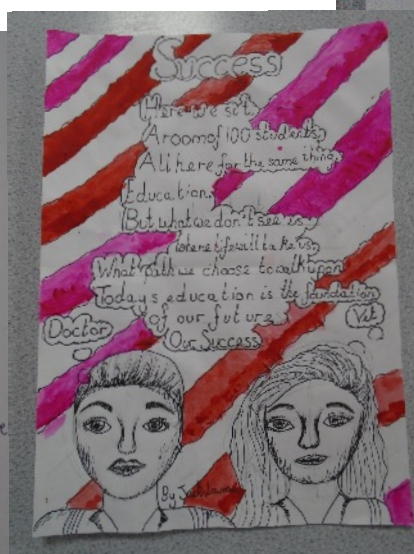 Success
Here we sit,
A room of 100 students,
All here for the same thing,
Education.
But what we don't see is,
Where life will take us,
What path we choose to walk upon
Todays education is the foundation
of our future
Our Success
Doctor
Vet
By